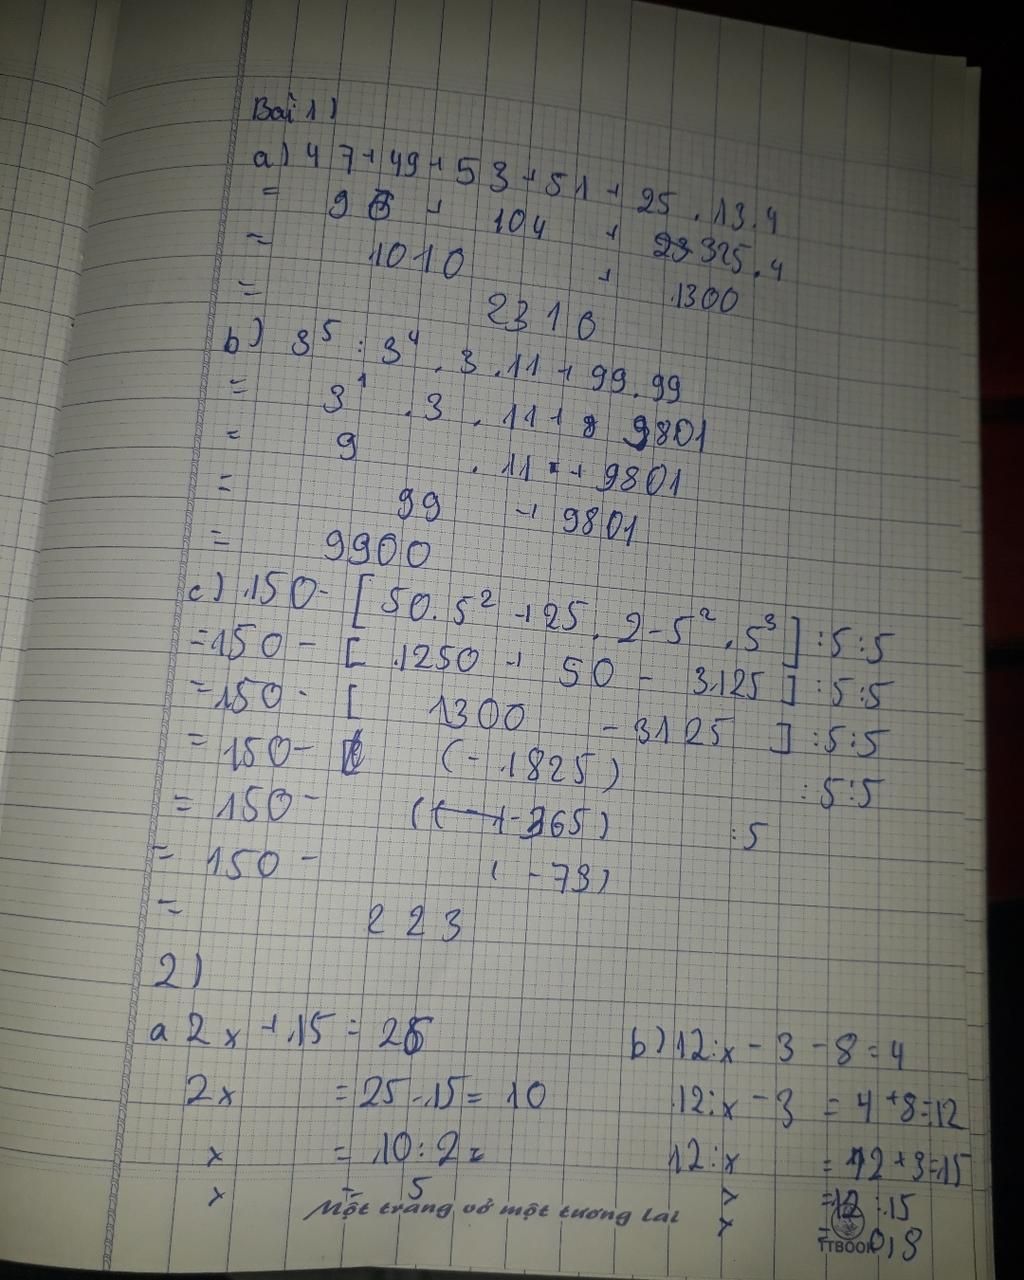 Bài 1)
a) 47 + 49 + 53 + 51 + 25 . 13 . 4
= 96 + 104 + 325 . 4
= 1010 + 1300
= 2310
b) 3⁵ : 3⁴ . 3 . 11 + 99 . 99
= 3¹ . 3 . 11 + 9801
= 9 . 11 + 9801
= 99 + 9801
= 9900
c) 150 - [50 . 5² + 25 . 2 - 5² . 5³] : 5 : 5
= 150 - [1250 + 50 - 3125] : 5 : 5
= 150 - [1300 - 3125] : 5 : 5
= 150 - (-1825) : 5 : 5
= 150 - (-365) : 5
= 150 - (-73)
= 223
2)
a 2x + 15 = 25
2x = 25 - 15 = 10
x = 10 : 2 =
x = 5
b) 12 : x - 3 - 8 = 4
12 : x - 3 = 4 + 8 = 12
12 : x = 12 + 3 = 15
x = 12 : 15
x = 0,8
Một trang vở một tương lai
TTBOOK